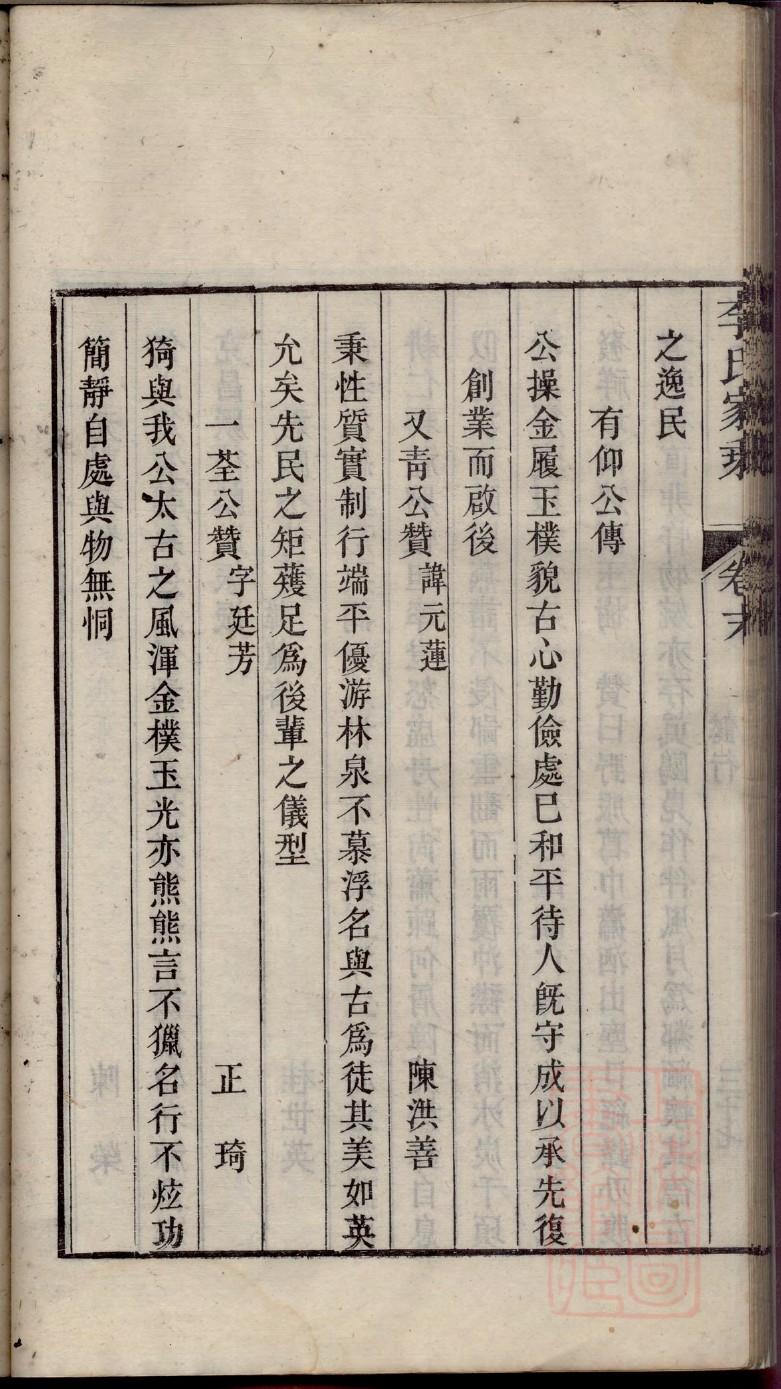 李氏家乘 卷末
之逸民
有仰公傳
公操金履玉樸貌古心勤儉處已和平待人既守成以承先復
創業而啟後
又青公贊 諱元蓮 陳洪善
秉性質實制行端平優游林泉不慕浮名與古爲徒其美如英
允矣先民之矩蒦足爲後輩之儀型
一荃公贊 字廷芳 正琦
猗與我公太古之風渾金樸玉光亦熊熊言不獵名行不炫功
簡靜自處與物無恫